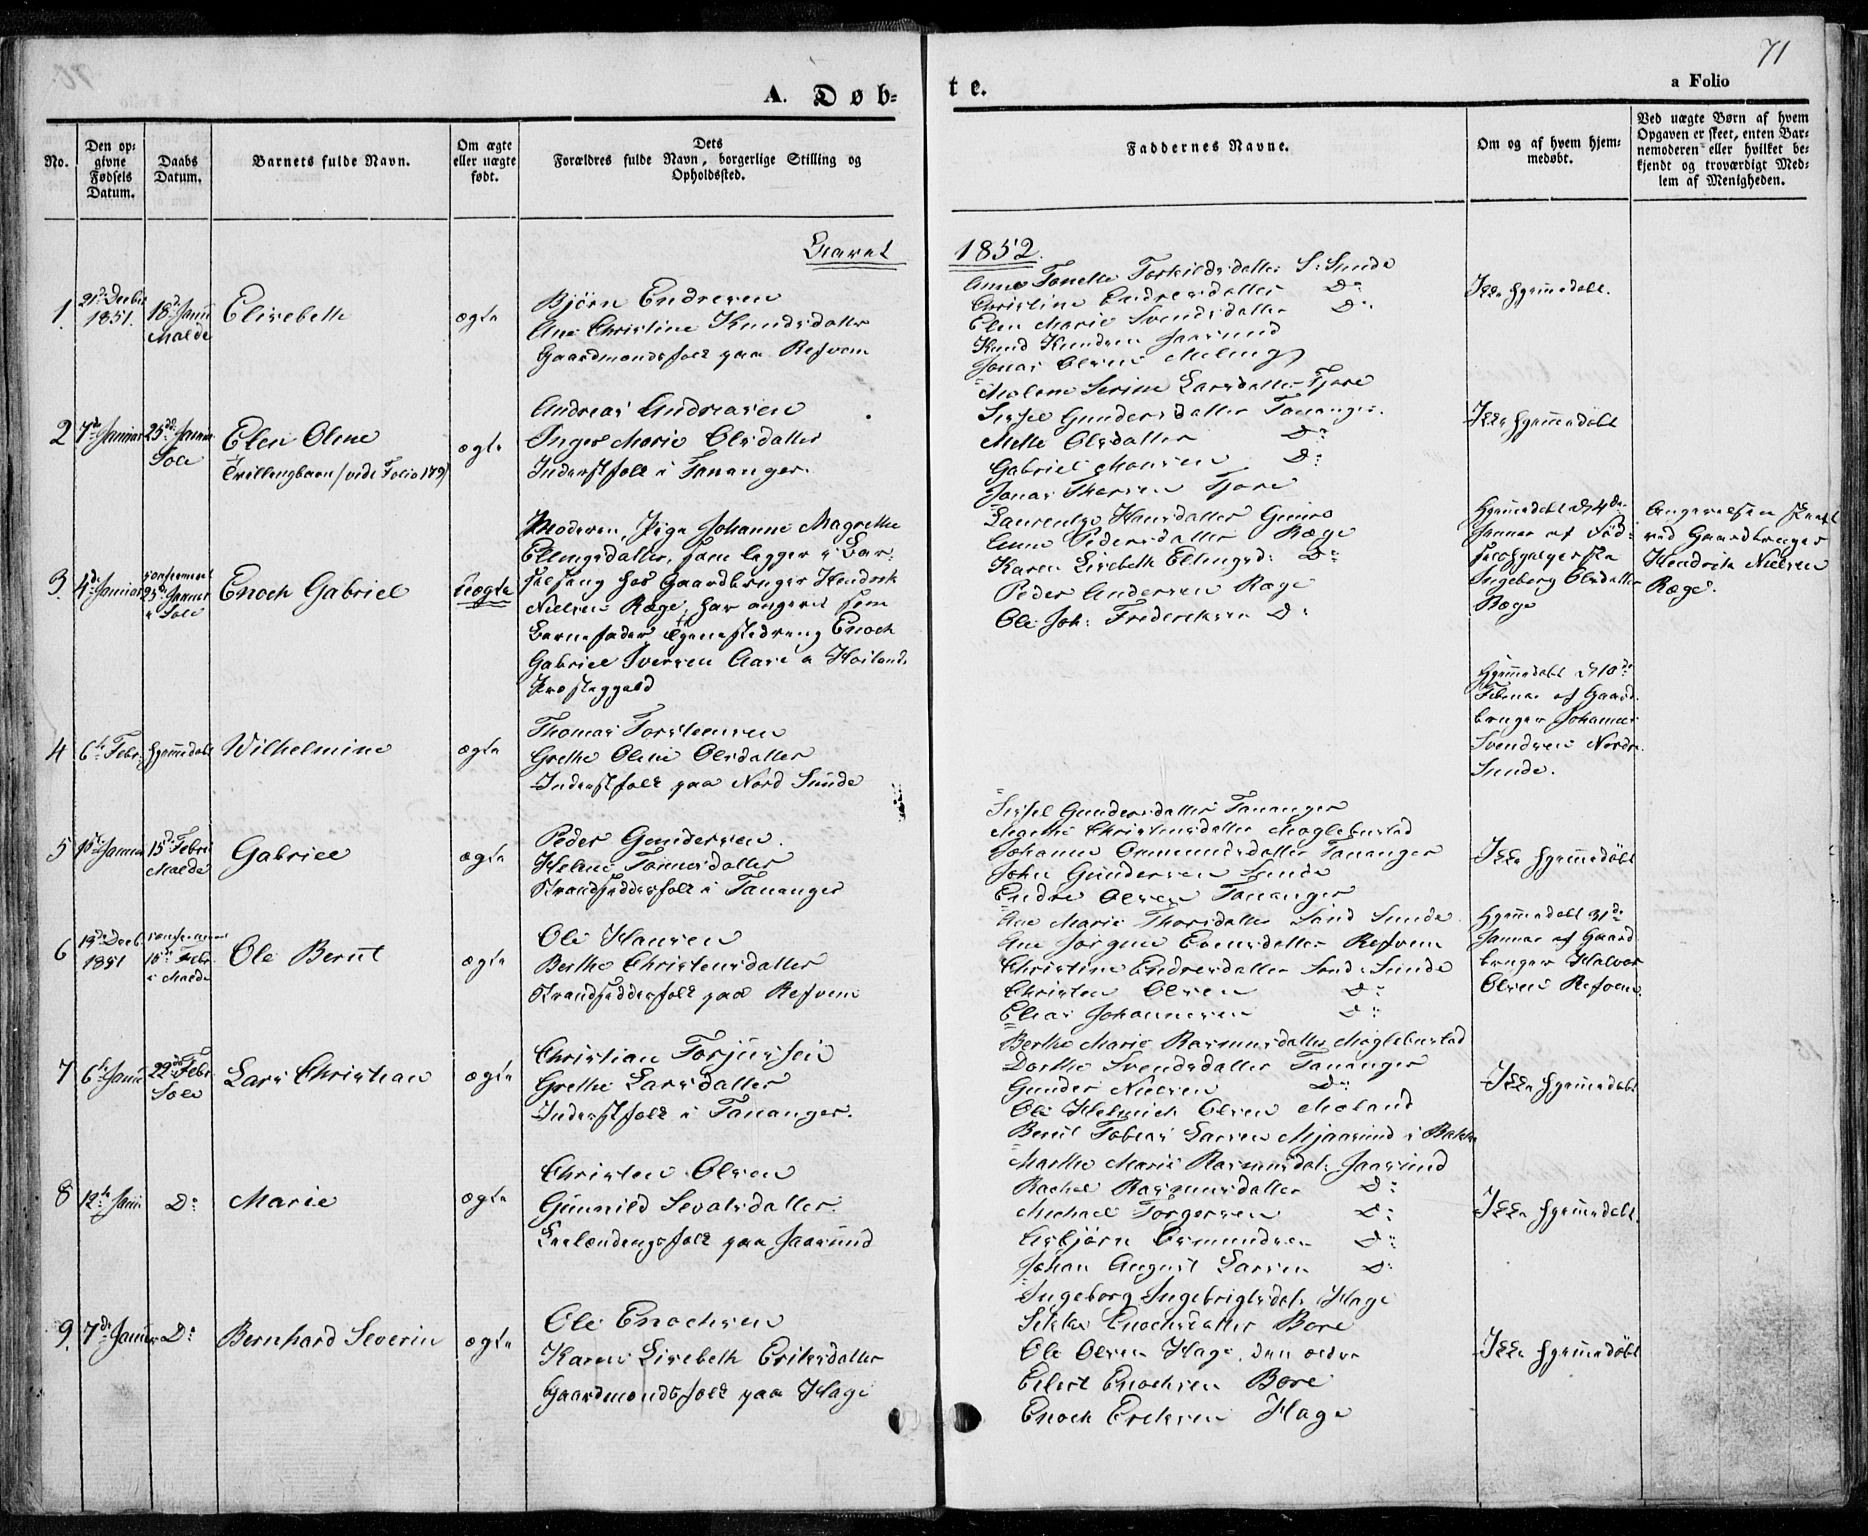 71
A. Døb-
te.
a Folio
No.
Den op-
givne
Fødsels
Datum.
Daabs
Datum.
Barnets fulde Navn.
Om ægte
eller uægte
født.
Dets
Forældres fulde Navn, borgerlige Stilling og
Opholdssted.
Faddernes Navne.
Om og af hvem hjem-
medøbt.
Ved uægte Børn af hvem
Opgaven er skeet, enten Bar-
nemoderen eller hvilket be-
kjendt og troværdigt Med-
lem af Menigheden.
Aaret
1852.
1.
21de Decbr
1851.
18de Janu
Malde
Elisebeth
ægte
Bjørn Endresen
Ane Christine Knudsdatter
Gaardmandsfolk paa Refvem
Anne Tonette Torkildsdatter S: Sunde
Christine Endresdatter D:
Elen Marie Svendsdatter D:
Knud Knudsen Jaasund
Jonas Olsen Meling
Ikke hjemmedøbt.
2
7de Januar
25de Januar
Sole
Elen Oline
Tvillingbarn (vide Folio 179)
ægte
Andreas Andreasen
Inger Marie Olsdatter
Inderstfolk i Tananger.
Malene Serine Larsdatter Tjore
Sissel Gundersdatter Tananger.
Mette Olsdatter D:
Gabriel Monsen D:
Jonas Thorsen Tjore
Ikke hjemmedøbt
3
4de Januar
confirmeret
25de Januar
i Sole
Enoch Gabriel
Uægte
Moderen, Pige Johanne Magrethe
Ellingsdatter, som ligger i Bar-
selseng hos Gaardbruger Hendrik
Nielsen Ræge, har angivet som
Barnefader Tjenestedreng Enoch
Gabriel Iversen Aase a Høilands
Præstegjeld
Laurentze Hansdatter Gimre
Anne Pedersdatter Ræge
Karen Lisebeth Ellingsd: D:
Peder Andersen Ræge
Ole Joh: Frederiksen D:
Hjemmedøbt d 4de
Januar af Jord-
Ingeborg Olsdatter
Ræge
Angivelsen skeet
ved Gaardbruger
Hendrik Nielsen
Ræge.
4
6te Febr.
hjemmedøbt
Wilhelmine
ægte
Thomas Torstensen
Grethe Oline Olsdatter
Inderstfolk paa Nord Sunde
Hjemmedøbt d 10de
Februar af Gaard-
bruger Johannes
Svendsen Nordre
Sunde.
5
15de Januar
15de Febr.
Malde
Gabriel
ægte
Peder Gundersen.
Helene Tønnesdatter
Strandsidderfolk i Tananger
Sissel Gundersdatter Tananger
Megene Christensdatter Møglebustad
Johanne Ommundsdatter Tananger
John Gundersen Sunde
Endre Olsen Tananger
Ikke hjemmedøbt
6
19de Decb.
1851
confirmeret
15de Febr.
i Malde
Ole Bernt
ægte
Ole Hansen
Berthe Christensdatter
Strandsidderfolk paa Refvem
Ane Marie Thorsdatter Sønd Sunde
Ane Jørgine Evensdatter Refvem
Christine Endresdatter Sønd: Sunde
Christen Olsen D:
Elias Johannesen D:
Hjemmedøbt 31de
Januar af Gaard-
bruger Halvor
Olsen Refvem.
7
6te Janu
22de Febr
Sole
Lars Christian
ægte
Christian Torjussen
Grethe Larsdatter
Inderstfolk i Tananger.
Berthe Marie Rasmusdatter Møglebustad
Dorthe Svendsdatter Tananger
Gunder Nielsen D:
Ole Helmich Olsen Meland
Bernt Tobias Larsen Mjaasund i Bakke
Ikke hjemmedøbt
8
12te Janu
D:
Marie
ægte
Christen Olsen
Gunnild Sevatsdatter
Leilændingsfolk paa Jaasund
Marthe Marie Rasmusdat: Jaasund
Rachel Rasmusdatter D:
Michael Torgersen D:
Asbjørn Osmundsen D:
Johan August Larsen D:
Ikke hjemmedøbt.
9.
7de Januar
D:
Bernhard Severin
ægte
Ole Enochsen
Karen Lisebeth Eriksdatter
Gaardmandsfolk paa Hage
Ingeborg Ingebrigtsdat: Hage
Sikke Enochsdatter Bore
Ole Olsen Hage, den ældre
Eilert Enochsen Bore
Enoch Eriksen Hage
Ikke hjemmedøbt